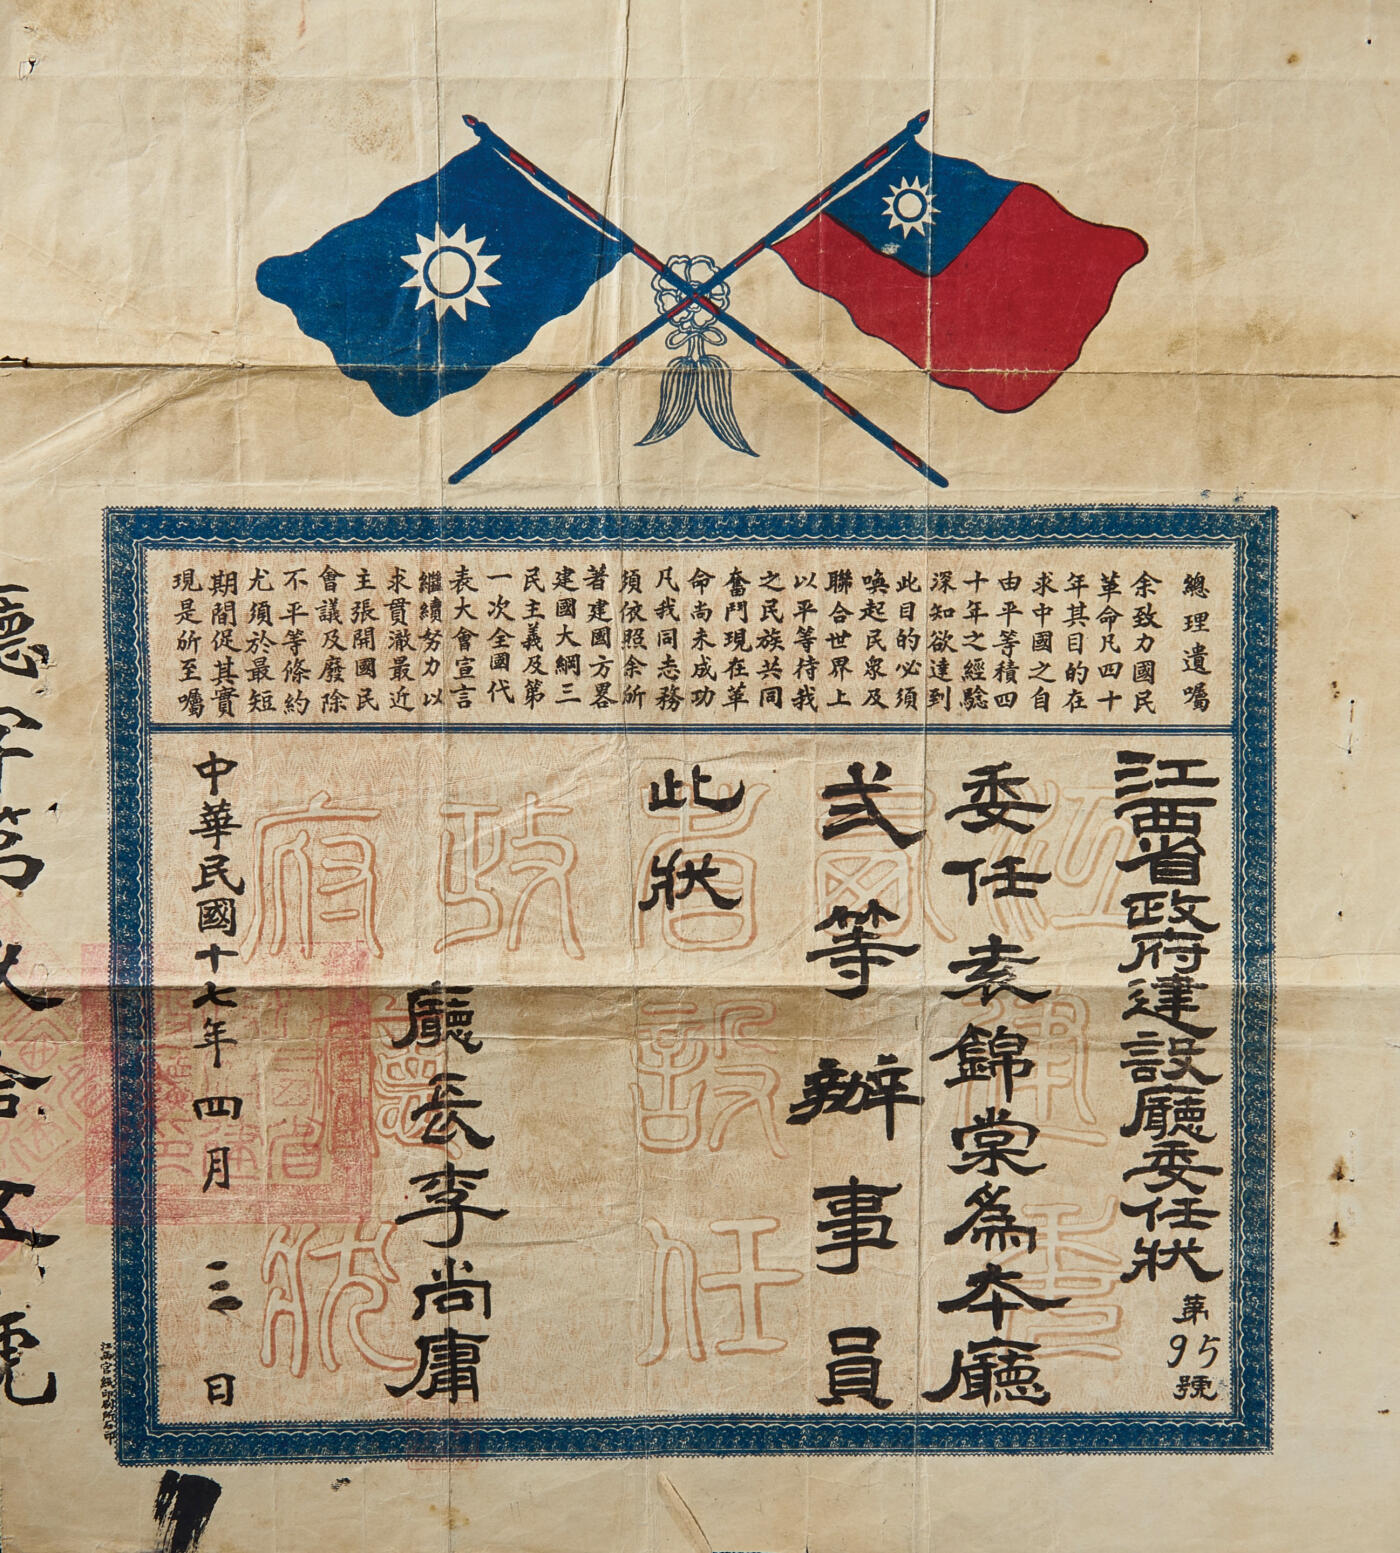 總理遺囑
余致力國民
革命凡四十
年其目的在
求中國之自
由平等積四
十年之經驗
深知欲達到
此目的必須
喚起民眾及
聯合世界上
以平等待我
之民族共同
奮鬥現在革
命尚未成功
凡我同志務
須依照余所
著建國方畧
建國大綱三
民主義及第
一次全國代
表大會宣言
繼續努力以
求貫澈最近
主張開國民
會議及廢除
不平等條約
尤須於最短
期間促其實
現是所至囑
江西省政府建設廳委任狀
第95號
委任袁錦棠為本廳
弍等辦事員
此狀
廳長李尚庸
中華民國十七年四月三日
江西省政府
建設廳委任狀
江西官紙印刷所石印